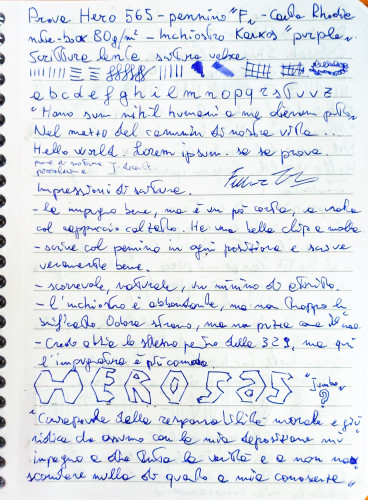 Prova Hero 565 - pennino "F" - Carta Rhodia
note-book 80g/m² - Inchiostro Kaxos "purple".
Scrittura lenta. scrittura veloce
a b c d e f g h i l m n o p q r s t u v z
"Homo sum nihil humani a me alienum puto"
Nel mezzo del cammin di nostra vita ...
Hello world. Lorem ipsum. sa sa prova.
prova di scrittura
pressione
Impressioni di scrittura.
- la impugno bene, ma è un pò corta, a volte
col cappuccio calzato. Ha una bella clip a molla
- scrive col pennino in ogni posizione e scrive
veramente bene.
- scorrevole, naturale, un minimo di attrito.
- l'inchiostro è abbondante, ma non troppo la
Odora strano, ma non puzza come il
- Credo abbia lo stesso pennino della 329, ma qui
l'impugnatura è più comoda.
HERO 565 "Jumbo" ?
"Consapevole della responsabilità morale e giu
ridica che assumo con la mia deposizione mi
impegno a dire tutta la verità e a non na
scondere nulla di quanto a mia conoscenza"